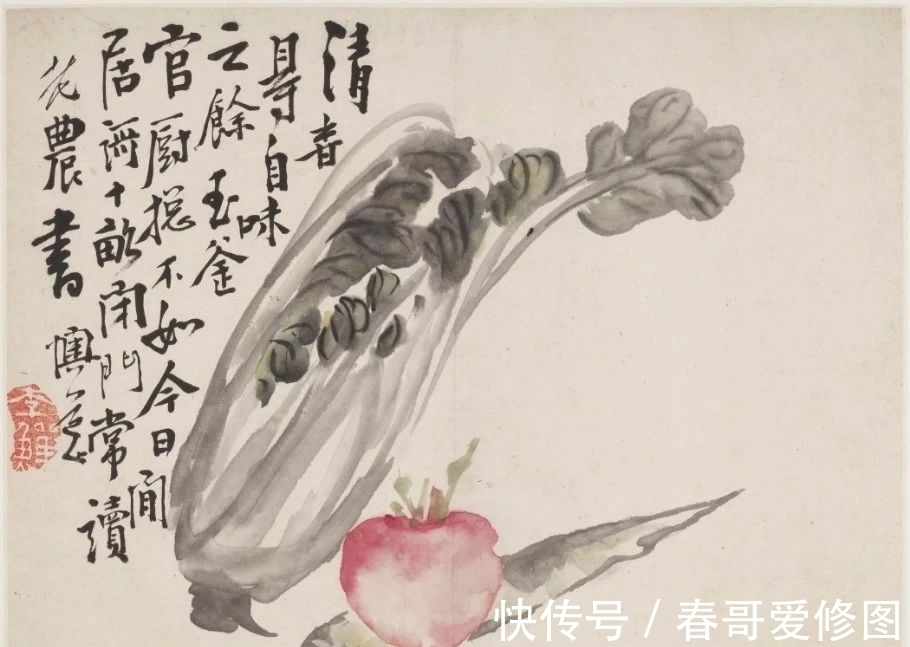 清香
尋自味
之餘玉釜
官厨摠不如今日閒
居十畝閉門常讀
花農書
懊道人
快传号 / 春哥爱修图